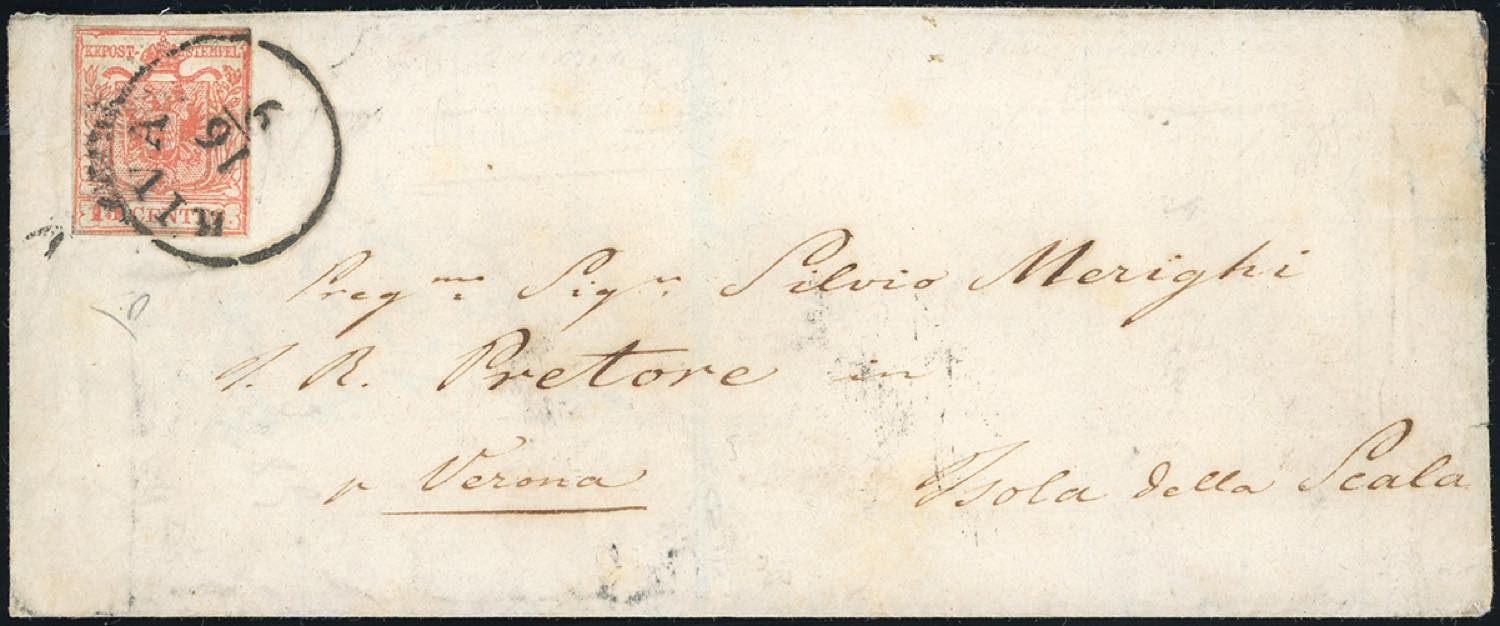 KKPOST-STEMPEL
15 CENTES.
RIVA
16
Preg.mo Sig.r Silvio Merighi
I. R. Pretore in
p Verona Isola della Scala